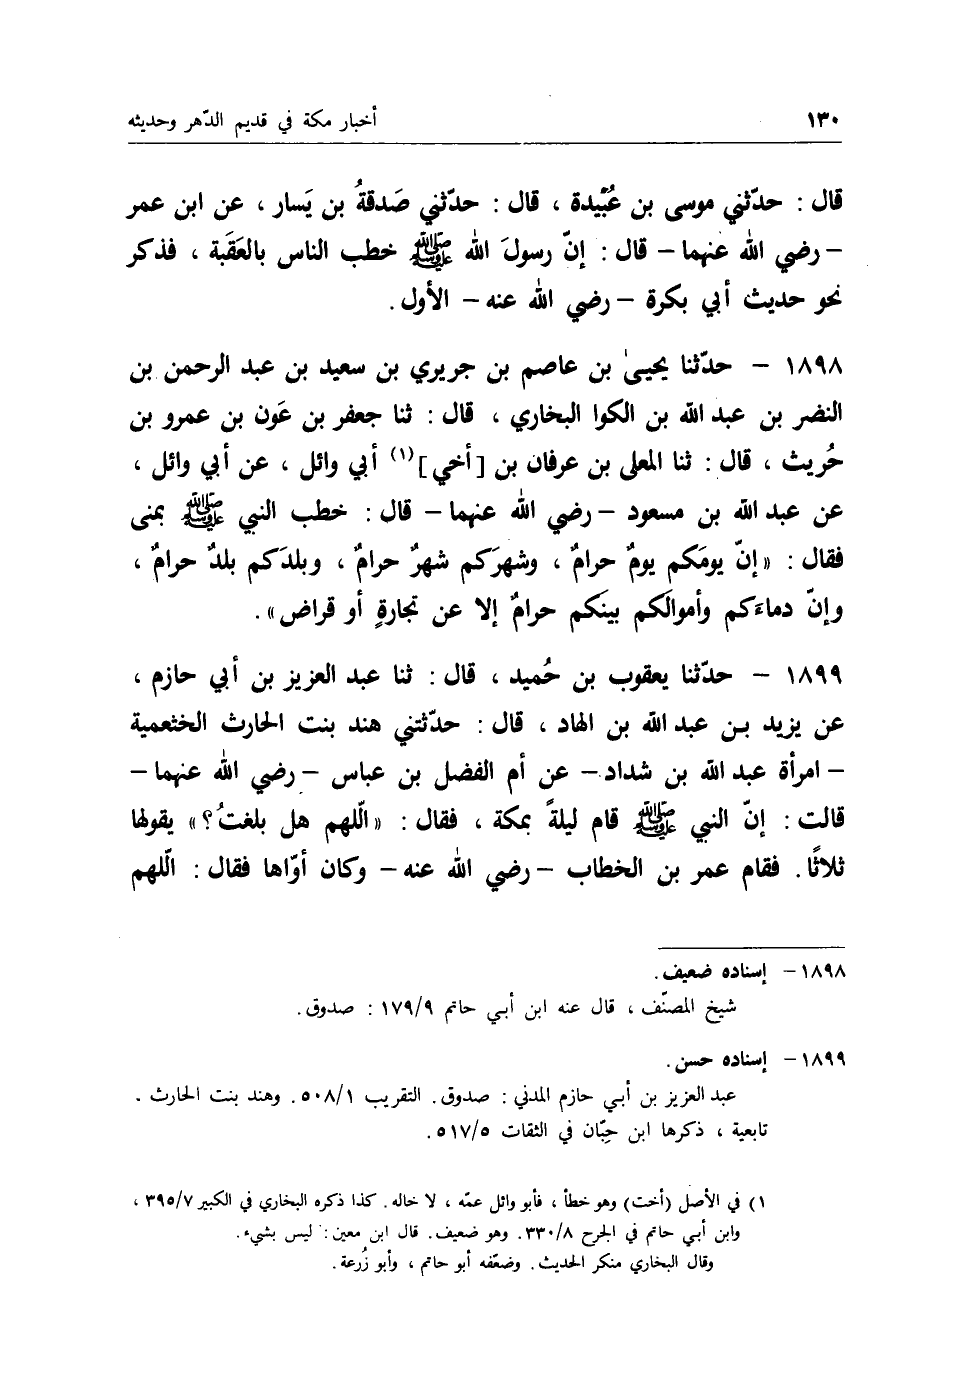 ١٣٠ أخبار مكة في قديم الدّهر وحديثه
قال : حدّثني موسى بن عُبَيْدة ، قال : حدّثني صَدقةُ بن يَسار ، عن ابن عمر
– رضي الله عنهما – قال : إنّ رسولَ الله ﷺ خطب الناس بالعَقَبة ، فذكر
نحو حديث أبي بكرة – رضي الله عنه – الأول .
١٨٩٨ – حدّثنا يحيىٰ بن عاصم بن جريري بن سعيد بن عبد الرحمن بن
النضر بن عبد الله بن الكوا البخاري ، قال : ثنا جعفر بن عَون بن عمرو بن
حُريث ، قال : ثنا المعلى بن عرفان بن [أخي](١) أبي وائل ، عن أبي وائل ،
عن عبد الله بن مسعود – رضي الله عنهما – قال : خطب النبي ﷺ بمنى
فقال : «إنّ يومَكم يومٌ حرامٌ ، وشهرَكم شهرٌ حرامٌ ، وبلدَكم بلدٌ حرامٌ ،
وإنّ دماءَكم وأموالَكم بينَكم حرامٌ إلا عن تجارةٍ أو قراض» .
١٨٩٩ – حدّثنا يعقوب بن حُميد ، قال : ثنا عبد العزيز بن أبي حازم ،
عن يزيد بـن عبد الله بن الهاد ، قال : حدّثتني هند بنت الحارث الخثعمية
– امرأة عبد الله بن شداد – عن أم الفضل بن عباس – رضي الله عنهما –
قالت : إنّ النبي ﷺ قام ليلةً بمكة ، فقال : «اللّهم هل بلغتُ؟» يقولها
ثلاثًا . فقام عمر بن الخطاب – رضي الله عنه – وكان أوّاها فقال : اللّهم
١٨٩٨ – إسناده ضعيف .
شيخ المصنّف ، قال عنه ابن أبي حاتم ١٧٩/٩ : صدوق .
١٨٩٩ – إسناده حسن .
عبد العزيز بن أبي حازم المدني : صدوق . التقريب ٥٠٨/١ . وهند بنت الحارث .
تابعية ، ذكرها ابن حِبّان في الثقات ٥١٧/٥ .
١) في الأصل (أخت) وهو خطأ ، فأبو وائل عمّه ، لا خاله . كذا ذكره البخاري في الكبير ٣٩٥/٧ ،
وابن أبي حاتم في الجرح ٣٣٠/٨ . وهو ضعيف . قال ابن معين : ليس بشيء .
وقال البخاري منكر الحديث . وضعّفه أبو حاتم ، وأبو زُرعة .